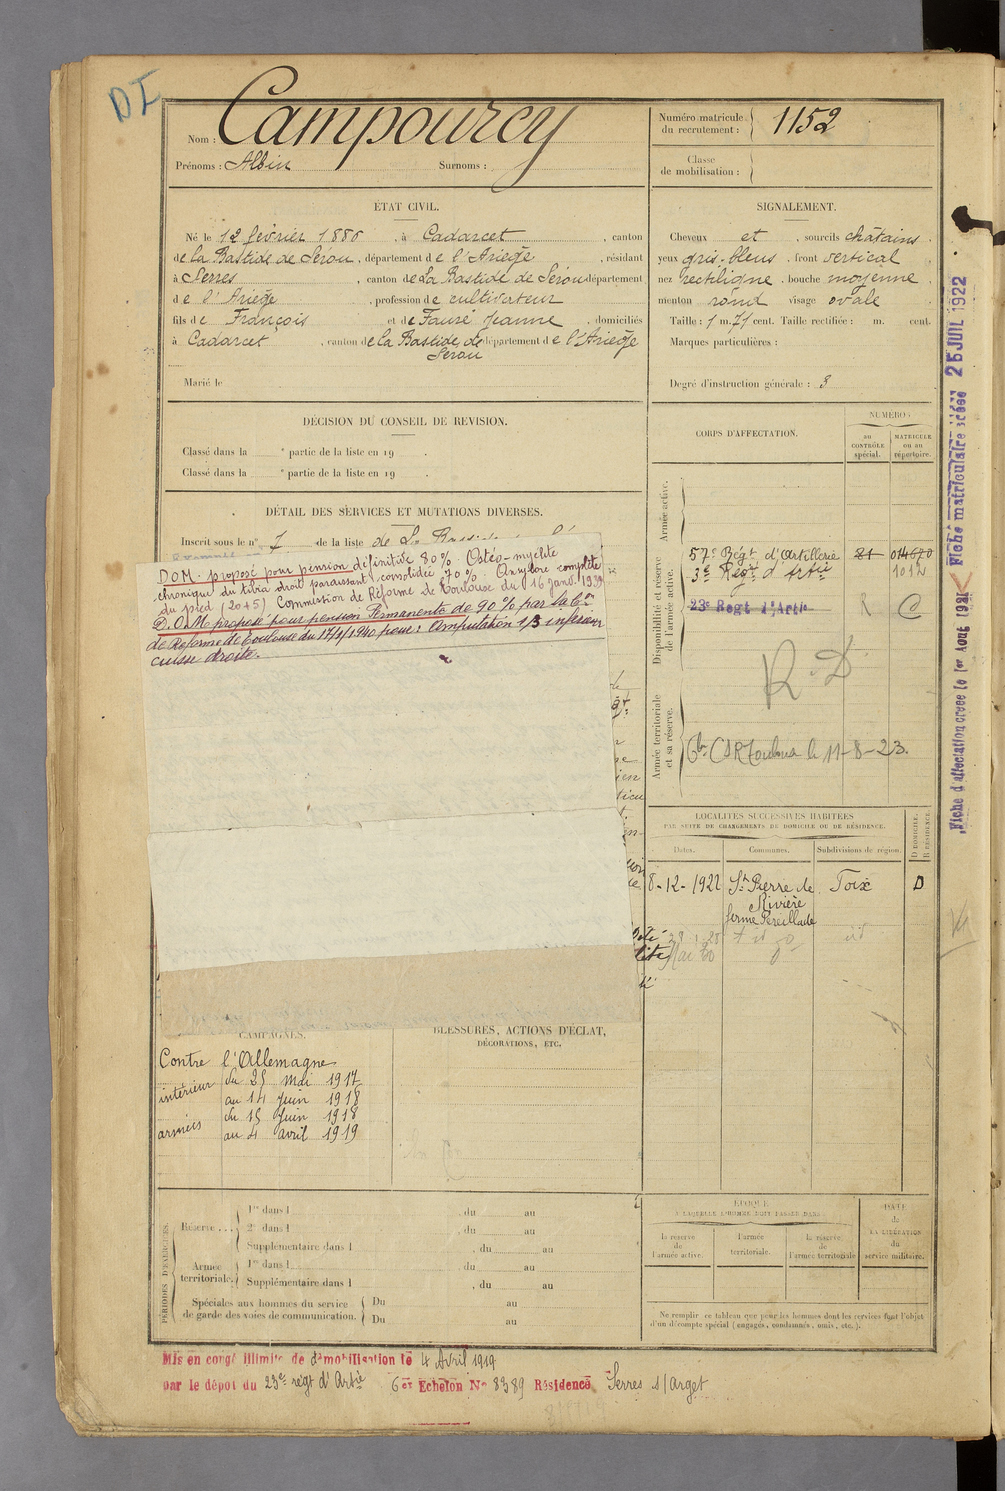 DI
Nom : Campourcy
Prénoms : Albin Surnoms :
Numéro matricule du recrutement : 1152
Classe de mobilisation :
ÉTAT CIVIL.
Né le 12 février 1886, à Cadarcet, canton
de la Bastide de Serou, département de l'Ariège, résidant
à Serres, canton de La Bastide de Sérou département
de l'Ariège, profession de cultivateur
fils de François et de Fauré Jeanne, domiciliés
à Cadarcet, canton de la Bastide de Serou département de l'Ariège
Marié le
SIGNALEMENT.
Cheveux et, sourcils châtains
yeux gris-bleus, front vertical
nez rectiligne, bouche moyenne
menton rond visage ovale
Taille : 1 m. 71 cent. Taille rectifiée : m. cent.
Marques particulières :
Degré d'instruction générale : 3
DÉCISION DU CONSEIL DE REVISION.
Classé dans la e partie de la liste en 19 .
Classé dans la e partie de la liste en 19 .
DÉTAIL DES SERVICES ET MUTATIONS DIVERSES.
Inscrit sous le n° 7 de la liste de La
D.O.M. proposé pour pension définitive 80% Ostéo-myélite
chronique du tibia droit paraissant consolidée 70% Ankylose complète
du pied (20+5) Commission de Réforme de Toulouse du 16 janv. 1939
D.O.M proposé pour pension Permanente de 90% par la Con
de Réforme de Toulouse du 17/4/1940 pour : Amputation 1/3 inférieur
cuisse droite.
CORPS D'AFFECTATION.
NUMÉROS
au CONTRÔLE spécial.
MATRICULE ou au répertoire.
Armée active.
Disponibilité et réserve de l'armée active.
57e Régt d'Artillerie
3e Régt d'Artie 1012
23e Regt d'Artie R C
R.D
Armée territoriale et sa réserve.
CSR Toulouse le 11-8-23.
LOCALITÉS SUCCESSIVES HABITÉES
PAR SUITE DE CHANGEMENTS DE DOMICILE OU DE RÉSIDENCE.
Dates. Communes. Subdivisions de région. D DOMICILE. R RÉSIDENCE.
8-12-1922 St Pierre de Rivière Foix D
ferme Pereillade
CAMPAGNES.
Contre l'Allemagne
intérieur du 25 mai 1917
au 14 Juin 1918
armées du 15 Juin 1918
au 4 avril 1919
BLESSURES, ACTIONS D'ÉCLAT,
DÉCORATIONS, ETC.
PÉRIODES D'EXERCICES.
Réserve ...
1re dans l , du au
2e dans l , du au
Supplémentaire dans l , du au
Armée territoriale.
1re dans l , du au
Supplémentaire dans l , du au
Spéciales aux hommes du service
de garde des voies de communication.
Du au
Du au
ÉPOQUE
À LAQUELLE L'HOMME DOIT PASSER DANS :
la réserve de l'armée active.
l'armée territoriale.
la réserve de l'armée territoriale
DATE de LA LIBÉRATION du service militaire.
Ne remplir ce tableau que pour les hommes dont les services font l'objet
d'un décompte spécial (engagés, condamnés, omis, etc.).
Mis en congé illimité de démobilisation le 4 Avril 1919
par le dépôt du 23e régt d'Artie 6er Echelon No 8389 Résidence Serres s/Arget
Fiche d'affectation créée le 1er Aout 1921
Fiche matriculaire créée 25 JUIL 1922